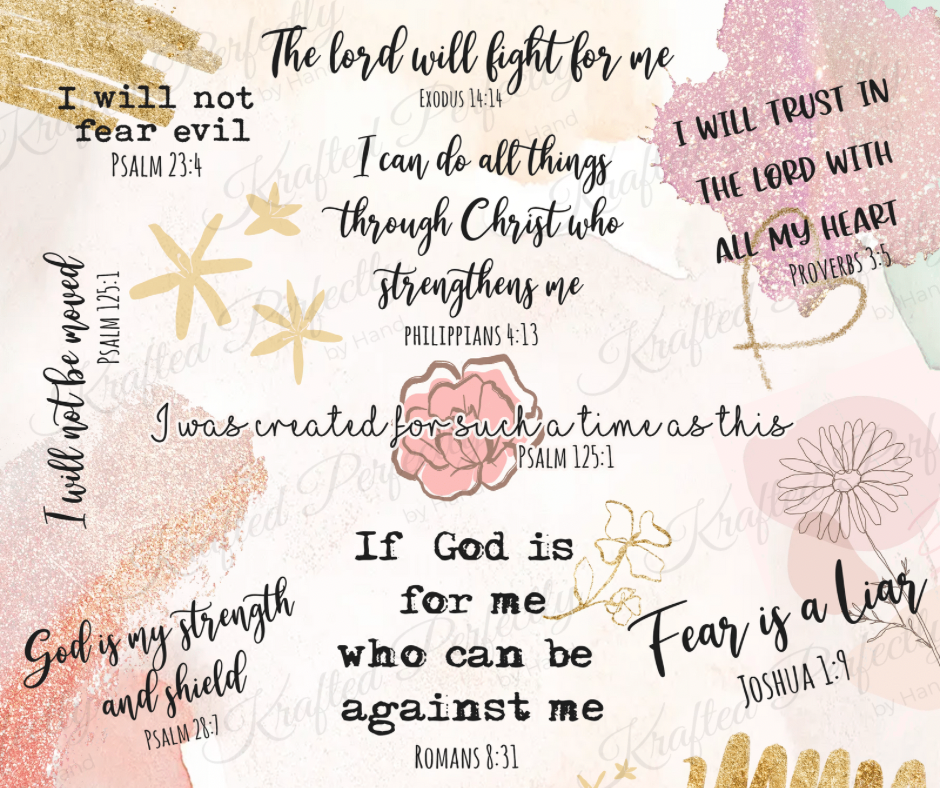 The lord will fight for me
Exodus 14:14
I will not
fear evil
Psalm 23:4
I can do all things
through Christ who
strengthens me
Philippians 4:13
I WILL TRUST IN
THE LORD WITH
ALL MY HEART
Proverbs 3:5
I will not be moved
Psalm 125:1
I was created for such a time as this
Psalm 125:1
If God is
for me
who can be
against me
Romans 8:31
God is my strength
and shield
Psalm 28:7
Fear is a Liar
Joshua 1:9
Krafted Perfectly
by Hand